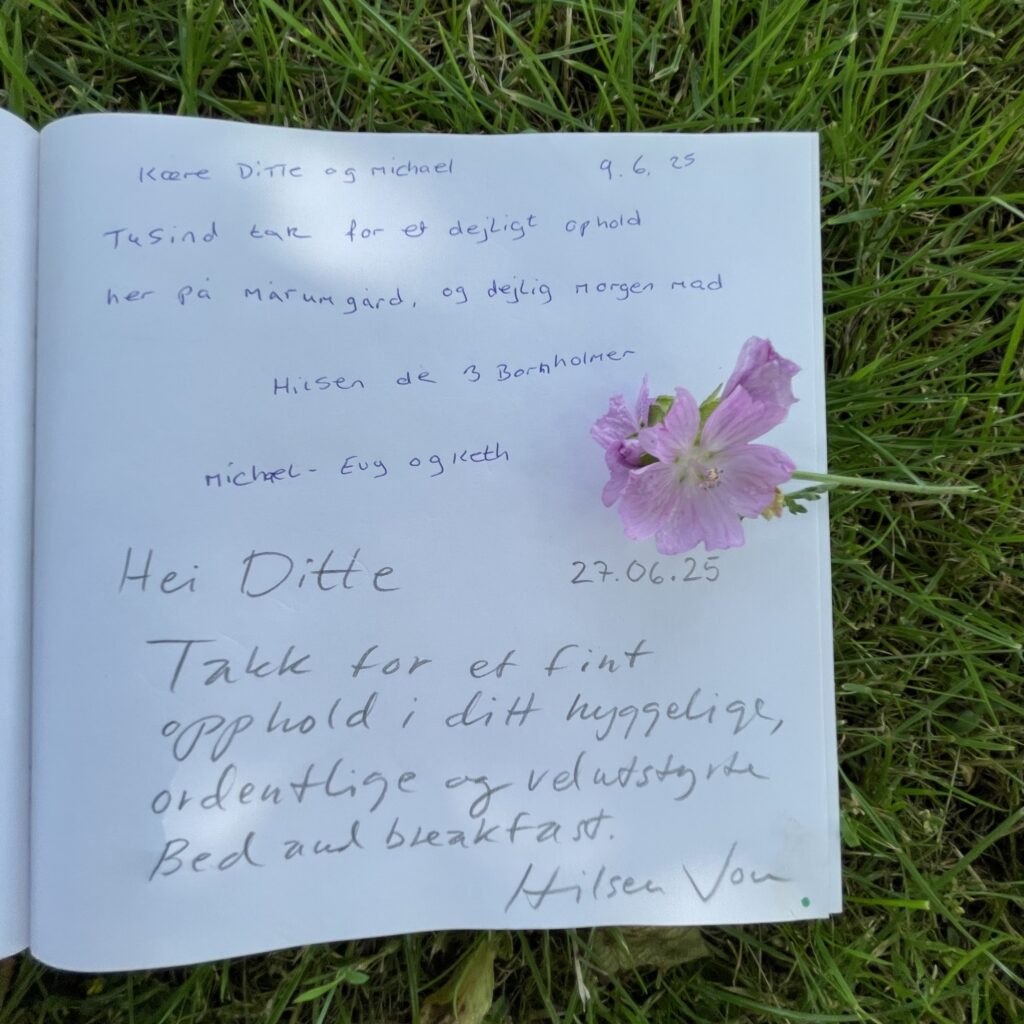 Kære Ditte og Michael 9.6.25
Tusind tak for et dejligt ophold
her på Mårumgård, og dejlig morgen mad
Hilsen de 3 Bornholmer
Michael - Evy og Keth
Hei Ditte 27.06.25
Takk for et fint
opphold i ditt hyggelige,
ordentlige og velutstyrte
Bed and breakfast.
Hilsen